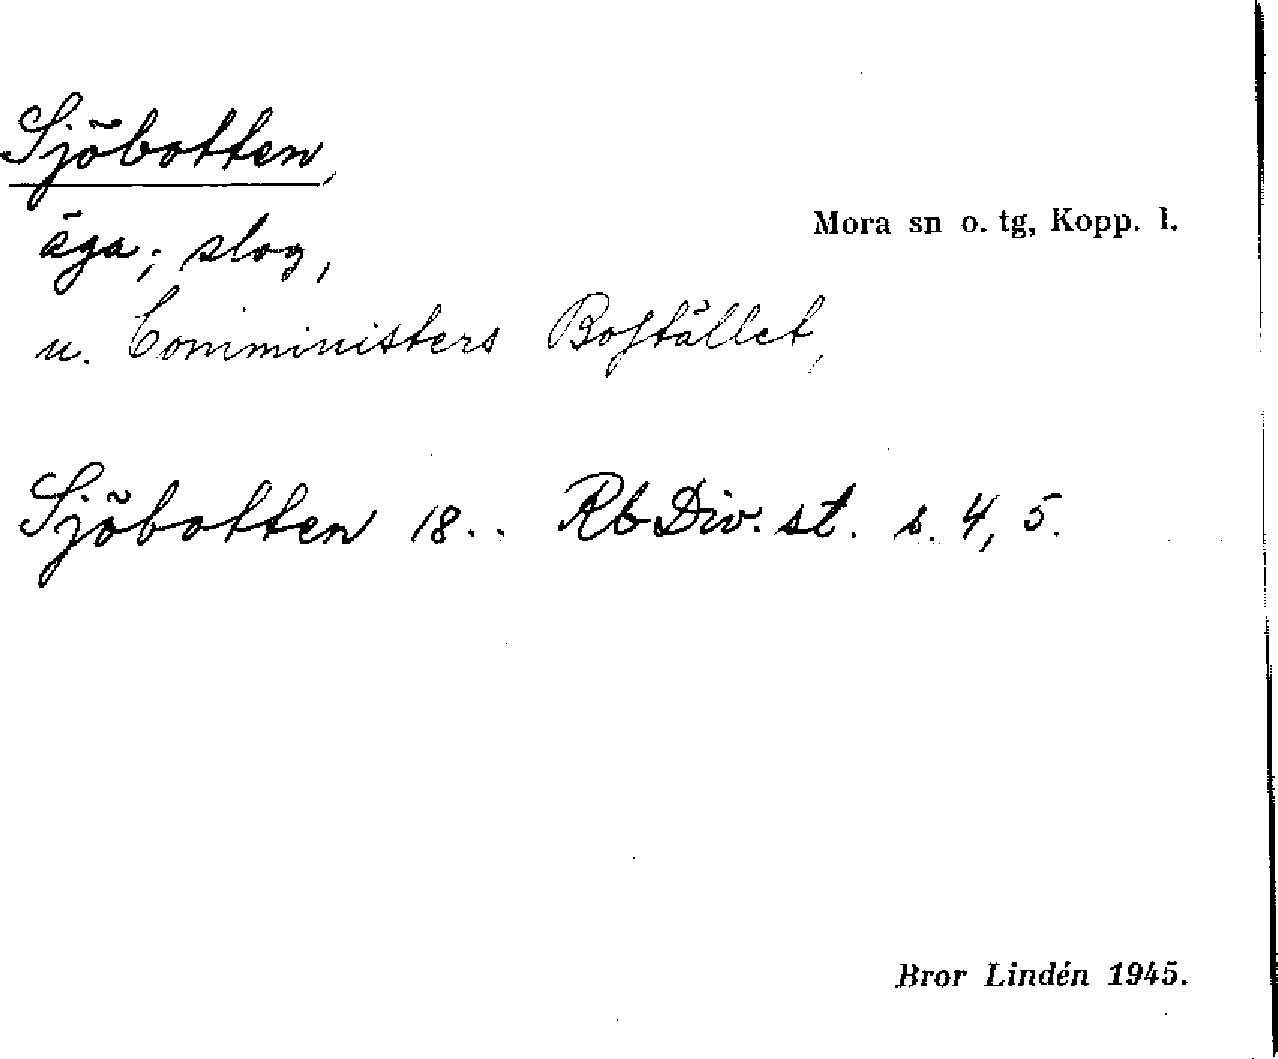 Sjöbotten,
äga; slog,
Mora sn o. tg, Kopp. l.
u. Comministers Boställlet,
Sjöbotten 18.. Rb Div. st. s. 4, 5.
Bror Lindén 1945.